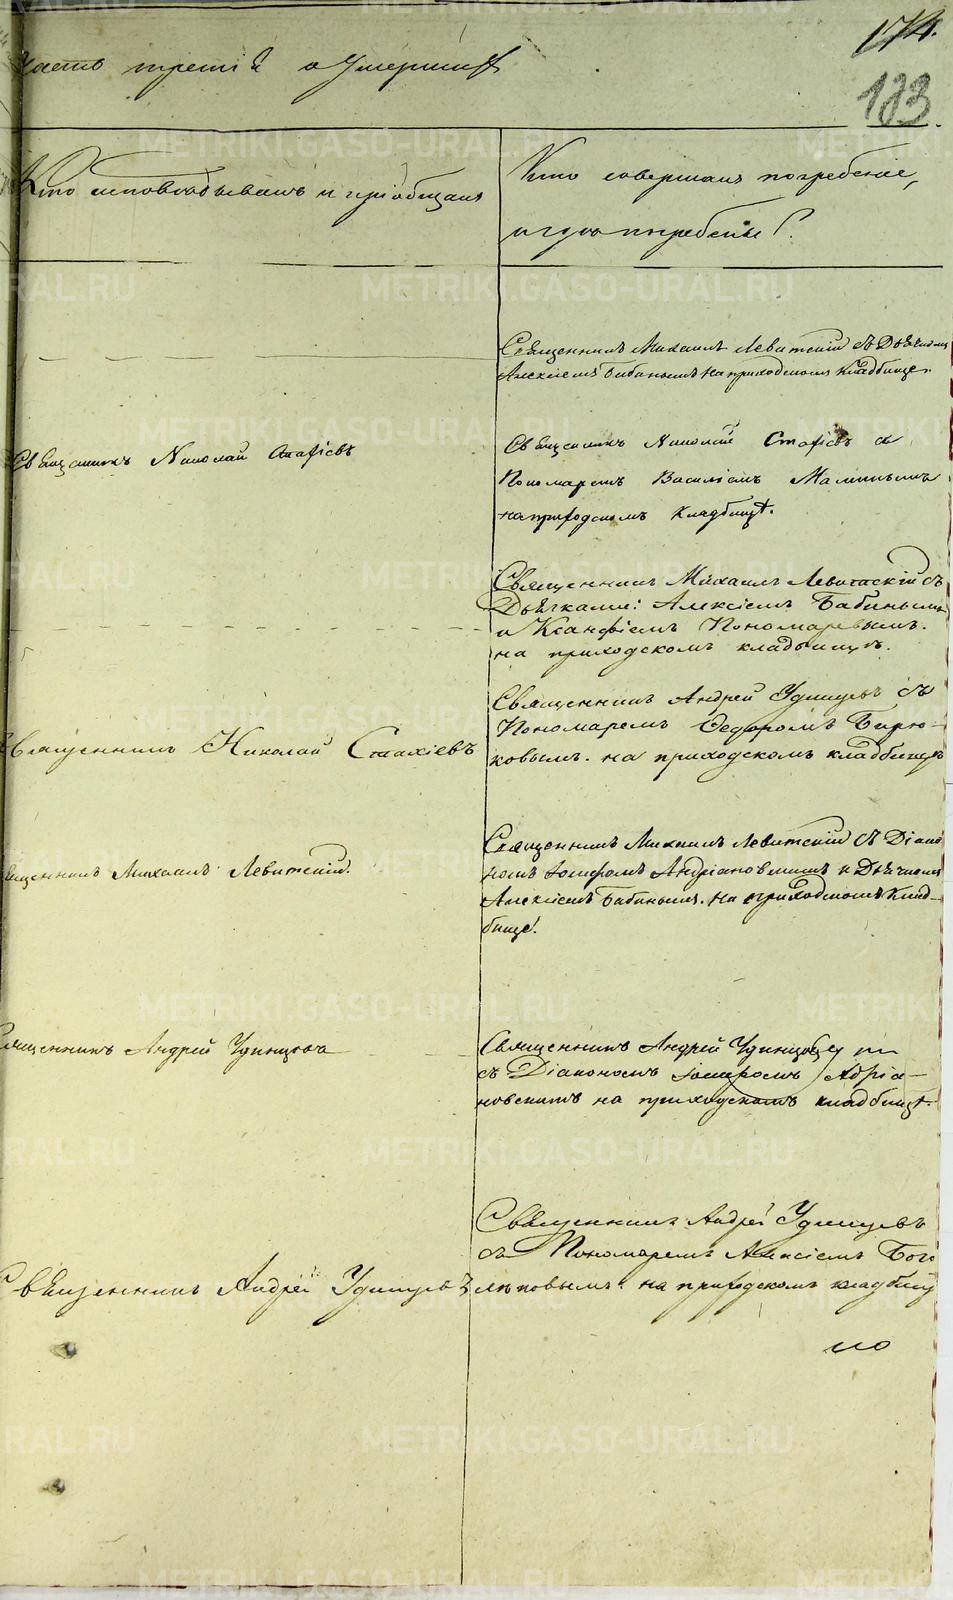 174.
Часть третія о умершихъ
183.
Кто исповѣдывалъ и пріобщалъ
Кто совершалъ погребеніе,
и гдѣ погребены?
Священникъ Михаилъ Левитскій съ Дьячкомъ
Алексіемъ Бабинымъ на приходскомъ кладбище.
Священникъ Николай Стафіевъ
Священникъ Николай Стафіевъ съ
Пономаремъ Василіемъ Малининымъ
на приходскомъ кладбищѣ.
Священникъ Михаилъ Левитскій съ
Дьячками: Алексіемъ Бабинымъ
и Ксанфіемъ Пономаревымъ.
на приходскомъ кладбищѣ.
Священникъ Николай Стахіевъ
Священникъ Андрей Удинцевъ съ
Пономаремъ Ѳедоромъ Бирю-
ковымъ. на приходскомъ кладбищѣ
Священникъ Михаилъ Левитскій.
Священникъ Михаилъ Левитскій съ Діако-
номъ Іосифомъ Андріановскимъ и Дьячкомъ
Алексіемъ Бабинымъ. на приходскомъ клад-
бище.
Священникъ Андрей Удинцовъ
Священникъ Андрей Удинцовъ
съ Діакономъ Іосифомъ Адріа-
новскимъ на приходскомъ кладбищѣ.
Священникъ Андрей Удинцевъ
Священникъ Андрей Удинцевъ
съ Пономаремъ Алексіемъ Бого
лѣповымъ. на приходскомъ кладбищѣ
по
METRIKI.GASO-URAL.RU